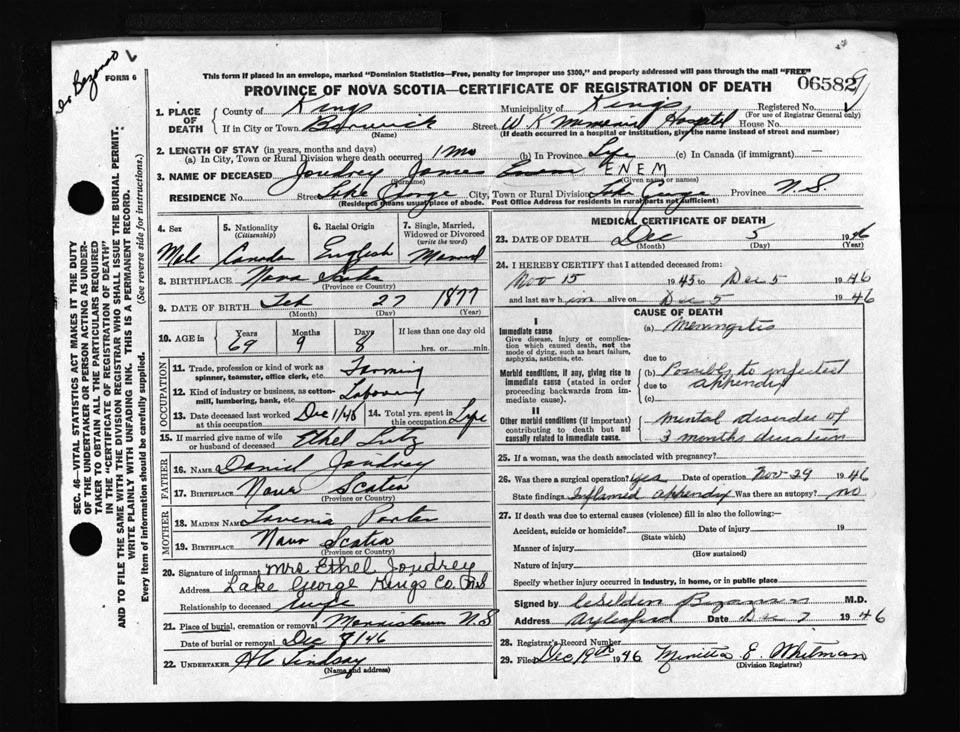 FORM 6
This form if placed in an envelope, marked "Dominion Statistics—Free, penalty for improper use $300," and properly addressed will pass through the mail "FREE"
PROVINCE OF NOVA SCOTIA—CERTIFICATE OF REGISTRATION OF DEATH
06582
1. PLACE OF DEATH
County of Kings Municipality of Kings Registered No.
(For use of Registrar General only)
If in City or Town Berwick Street W K Memorial Hospital House No.
(Name) (If death occurred in a hospital or institution, give the name instead of street and number)
2. LENGTH OF STAY (in years, months and days)
(a) In City, Town or Rural Division where death occurred 1 Mo (b) In Province Life (c) In Canada (if immigrant) —
3. NAME OF DECEASED Joudrey James Enem ENEM
(Surname) (Given name or names)
RESIDENCE No. Street Lake George City, Town or Rural Division Lake George Province N.S.
(Residence means usual place of abode. Post Office Address for residents in rural parts not sufficient)
4. Sex
Male
5. Nationality (Citizenship)
Canadian
6. Racial Origin
English
7. Single, Married, Widowed or Divorced (write the word)
Married
8. BIRTHPLACE Nova Scotia
(Province or Country)
9. DATE OF BIRTH Feb 27 1877
(Month) (Day) (Year)
10. AGE in Years Months Days If less than one day old
69 9 8 hrs. or min.
OCCUPATION
11. Trade, profession or kind of work as spinner, teamster, office clerk, etc. Farming
12. Kind of industry or business, as cotton-mill, lumbering, bank, etc. Laboring
13. Date deceased last worked at this occupation Dec 1/46
14. Total yrs. spent in this occupation Life
15. If married give name of wife or husband of deceased Ethel Lutz
FATHER
16. NAME Daniel Joudrey
17. BIRTHPLACE Nova Scotia
(Province or Country)
MOTHER
18. MAIDEN NAME Lavenia Porter
19. BIRTHPLACE Nova Scotia
(Province or Country)
20. Signature of informant Mrs Ethel Joudrey
Address Lake George Kings Co. N.S
Relationship to deceased Wife
21. Place of burial, cremation or removal Morristown N.S
Date of burial or removal Dec 8/46
22. UNDERTAKER Lindsay
(Name and address)
MEDICAL CERTIFICATE OF DEATH
23. DATE OF DEATH Dec 5 1946
(Month) (Day) (Year)
24. I HEREBY CERTIFY that I attended deceased from:
Nov 15 1945 to Dec 5 1946
and last saw him alive on Dec 5 1946
CAUSE OF DEATH
I
Immediate cause
Give disease, injury or complication which caused death, not the mode of dying, such as heart failure, asphyxia, asthenia, etc.
(a) Meningitis
due to
Morbid conditions, if any, giving rise to immediate cause (stated in order proceeding backwards from immediate cause).
(b) Possibly to infected
due to appendix
(c)
II
Other morbid conditions (if important) contributing to death but not causally related to immediate cause.
mental disorder of
3 months duration
25. If a woman, was the death associated with pregnancy?
26. Was there a surgical operation? yes Date of operation Nov 29 1946
State findings Inflamed appendix Was there an autopsy? no
27. If death was due to external causes (violence) fill in also the following:—
Accident, suicide or homicide? Date of injury 19
(State which)
Manner of injury
(How sustained)
Nature of injury
Specify whether injury occurred in industry, in home, or in public place
Signed by M.D.
Address Aylesford Date Dec 7 1946
28. Registrar's Record Number
29. Filed Dec 19th 1946 E. Whitman
(Division Registrar)
SEC. 46—VITAL STATISTICS ACT MAKES IT THE DUTY
OF THE UNDERTAKER OR PERSON ACTING AS UNDER-
TAKER TO OBTAIN ALL THE PARTICULARS REQUIRED
IN THE "CERTIFICATE OF REGISTRATION OF DEATH"
AND TO FILE THE SAME WITH THE DIVISION REGISTRAR WHO SHALL ISSUE THE BURIAL PERMIT.
WRITE PLAINLY WITH UNFADING INK. THIS IS A PERMANENT RECORD.
Every item of information should be carefully supplied. (See reverse side for instructions.)